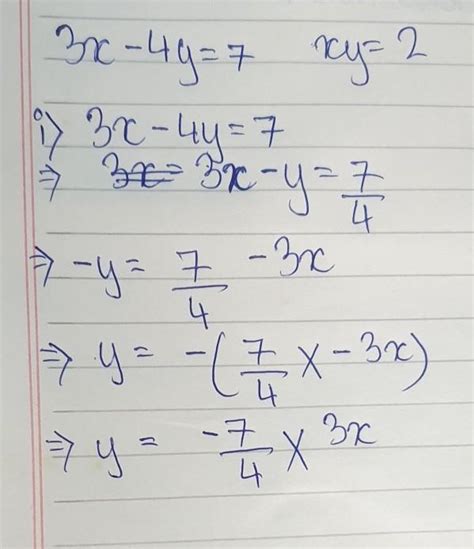 3x - 4y = 7    xy = 2
i) 3x - 4y = 7
⇒ 3x - y = 7/4
⇒ -y = 7/4 - 3x
⇒ y = -(7/4 × - 3x)
⇒ y = -7/4 × 3x